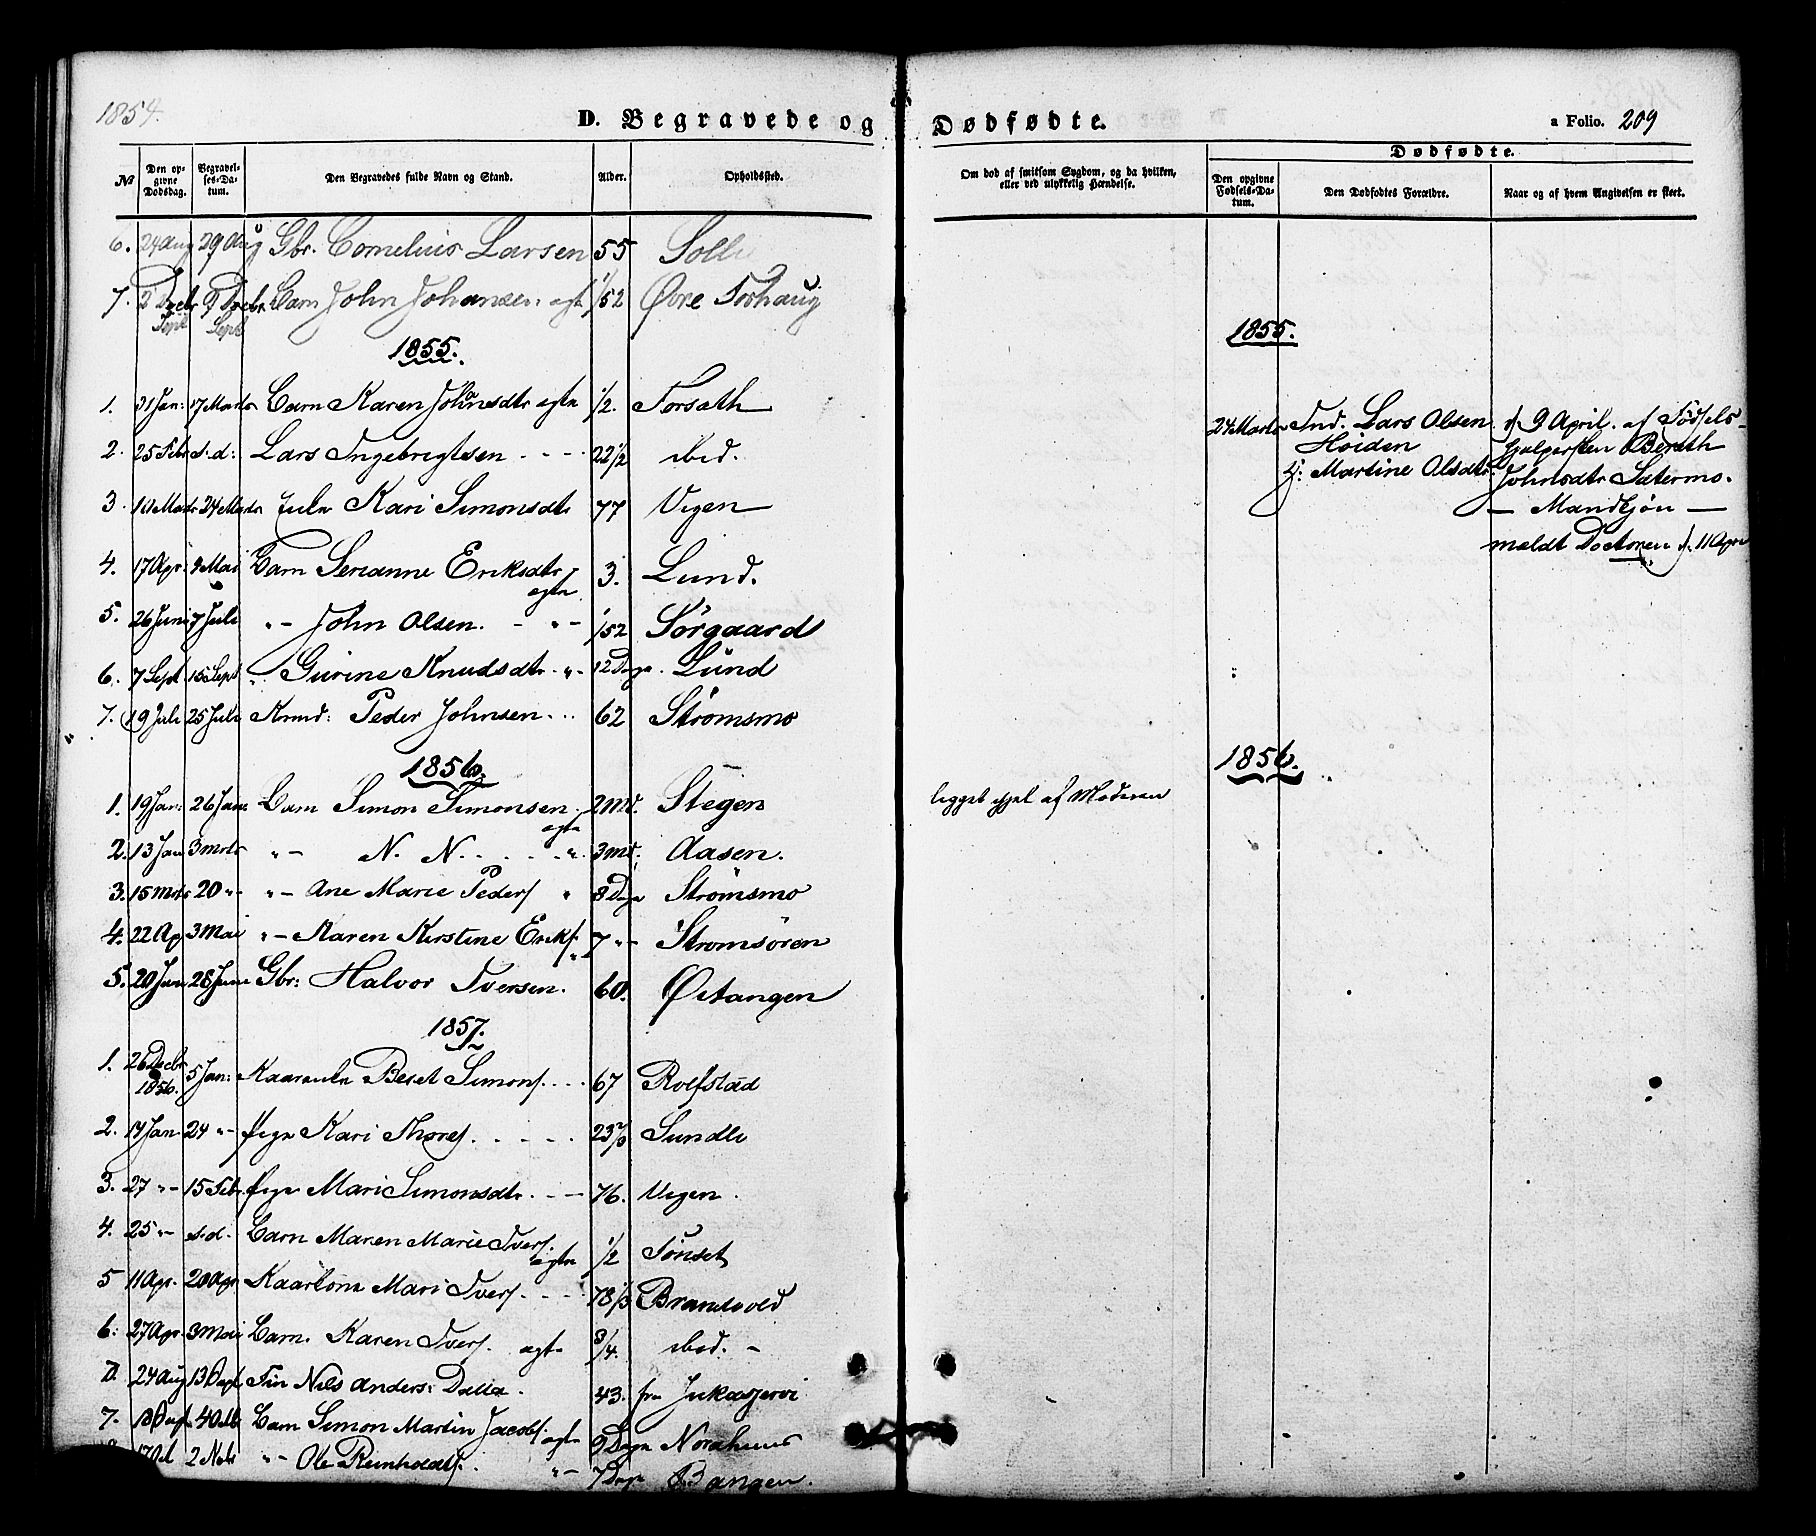 1854.
D. Begravede og Dødfødte.
a Folio. 209
Dødfødte.
No
Den opgivne Dødsdag.
Begravelses-Datum.
Den Begravedes fulde Navn og Stand.
Alder.
Opholdssted.
Om død af smitsom Sygdom, og da hvilken, eller ved ulykkelig Hændelse.
Den opgivne Fødsels-Datum.
Den Dødfødtes Forældre.
Naar og af hvem Angivelsen er skeet.
6. 24 Aug 29 Aug Gbr. Cornelius Larsen 55 Solli
7. 2 Decbr 9 Decbr. Barn John Johansen. ægte 1/52 Øvre Forhaug
Sept Sept
1855.
1855.
1. 31 Jan: 17 Marts Barn Karen Johnsdtr ægte 1/2. Forsæth
2. 25 Febr s.d: Lars Ingebrigtsen - - - - 22 1/2 ibid.
3. 10 Marts 24 Marts Kari Simonsdtr 77 Vegen
4. 17 Apr. 9 Mai Barn Serianne Eriksdtr - ægte 3. Lund.
5. 26 Juni 7 Juli "- John Olsen. - "- 1/52 Sörgaard
6. 7 Sept 15 Sept " Gurine Knudsdtr - "- 12 Dage. Lund
7. 19 Juli 25 Juli Kmd: Peder Johnsen. .. 62 Strömsmo
24 Marts Ind. Lars Olsen
Höiden
H: Martine Olsdtr.
d. 9 April. af Födsels-
hjælpersken Bereth
Johnsdtr Sætermo.
— Mandkjön —
meldt Doctoren d. 11 Apr
1856.
1856.
1. 19 Jan: 26 Jan: Barn Simon Simonsen. ægte 2 Md. Stegen
ligget ihjel af Moderen
2. 13 Jan 3 Mrts "- N. N. . . . . ". 3 Md. Aasen.
3. 15 Mrts 20 "- "- Ane Marie Peders " 8 Dage Strömsmo
4. 22 Ap 3 Mai "- Karen Kirstine Eriks. " 7 "- Strømsören
5. 20 Jun 28 Juni Gbr: Halvor Iversen. 60. Östangen
1857.
1. 26 Decbr 1856. 5 Jan: Beret Simons. ... 67 Rolfstad
2. 14 Jan. 24 "- Pige Kari Thores. . - - - . Sundli
3. 27 "- 15 Febr. Pige Mari Simonsdtr. - - - 76. Vegen.
4. 25 "- s.d. Barn Maren Marie Ivers. ægte 1/2 Tönset
5 11 Apr. 20 Apr Mari Ivers. - - - 78 1/3 Brandvold
6: 27 Apr. 3 Mai Barn. Karen Ivers. ægte 3/4. ibid. -
24 Aug 13 Sept Fin Nils Anders: Dalla. 43. fra Jukasjervi
7. 4 Barn Simon Martin Jacobs. ægte 9 Dage
2 "- Ole Reinholdts. "- 7 Dage Bangen.